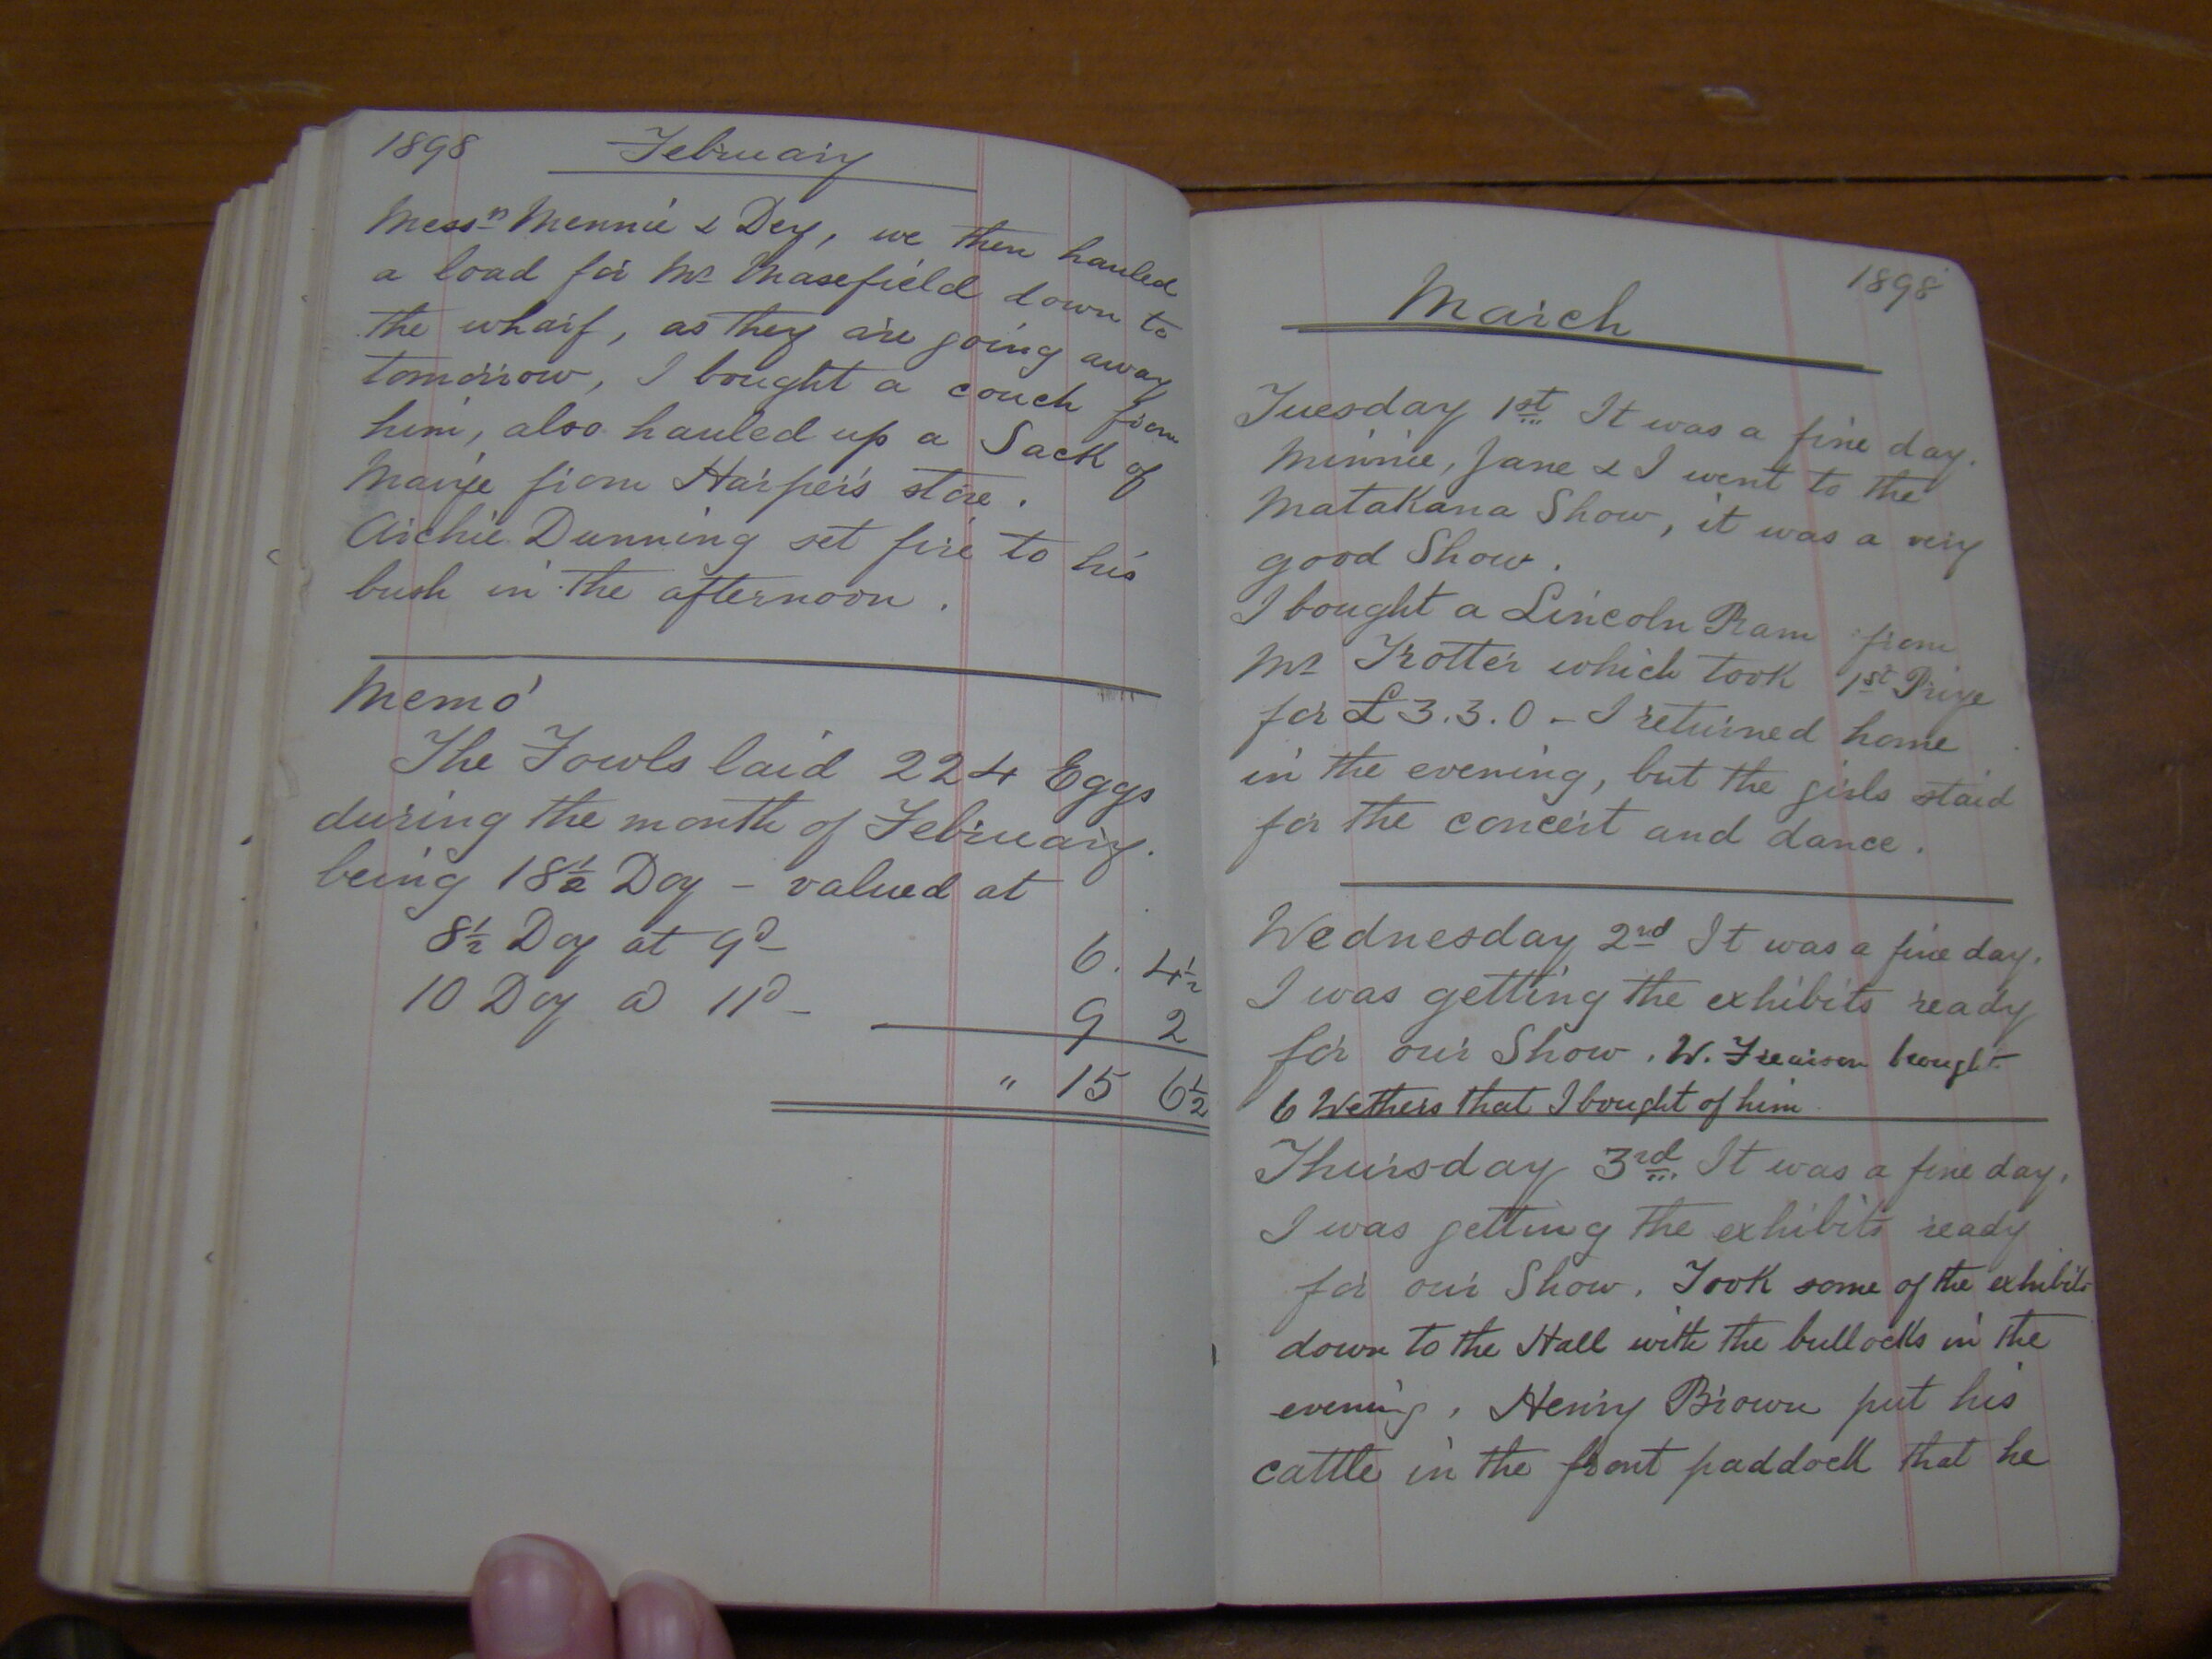 1898 February
Messrs Mennie & Dey, we then hauled
a load for Mr Masefield down to
the wharf, as they are going away
tomorrow, I bought a couch from
him, also hauled up a Sack of
Maize from Harper's store.
Archie Dunning set fire to his
bush in the afternoon.
Memo
The Fowls laid 224 Eggs
during the month of February.
being 18½ Doz - valued at
8½ Doz at 9d 6. 4½
10 Doz @ 11d - 9 2
" 15 6½
1898
March
Tuesday 1st It was a fine day.
Minnie, Jane & I went to the
Matakana Show, it was a very
good Show.
I bought a Lincoln Ram from
Mr Trotter which took 1st Prize
for £3.3.0 - I returned home
in the evening, but the girls staid
for the concert and dance.
Wednesday 2nd It was a fine day.
I was getting the exhibits ready
for our Show. W. brought
6 Wethers that I bought of him
Thursday 3rd It was a fine day.
I was getting the exhibits ready
for our Show. Took some of the exhibits
down to the Hall with the bullocks in the
evening, Henry Brown put his
cattle in the front paddock that he